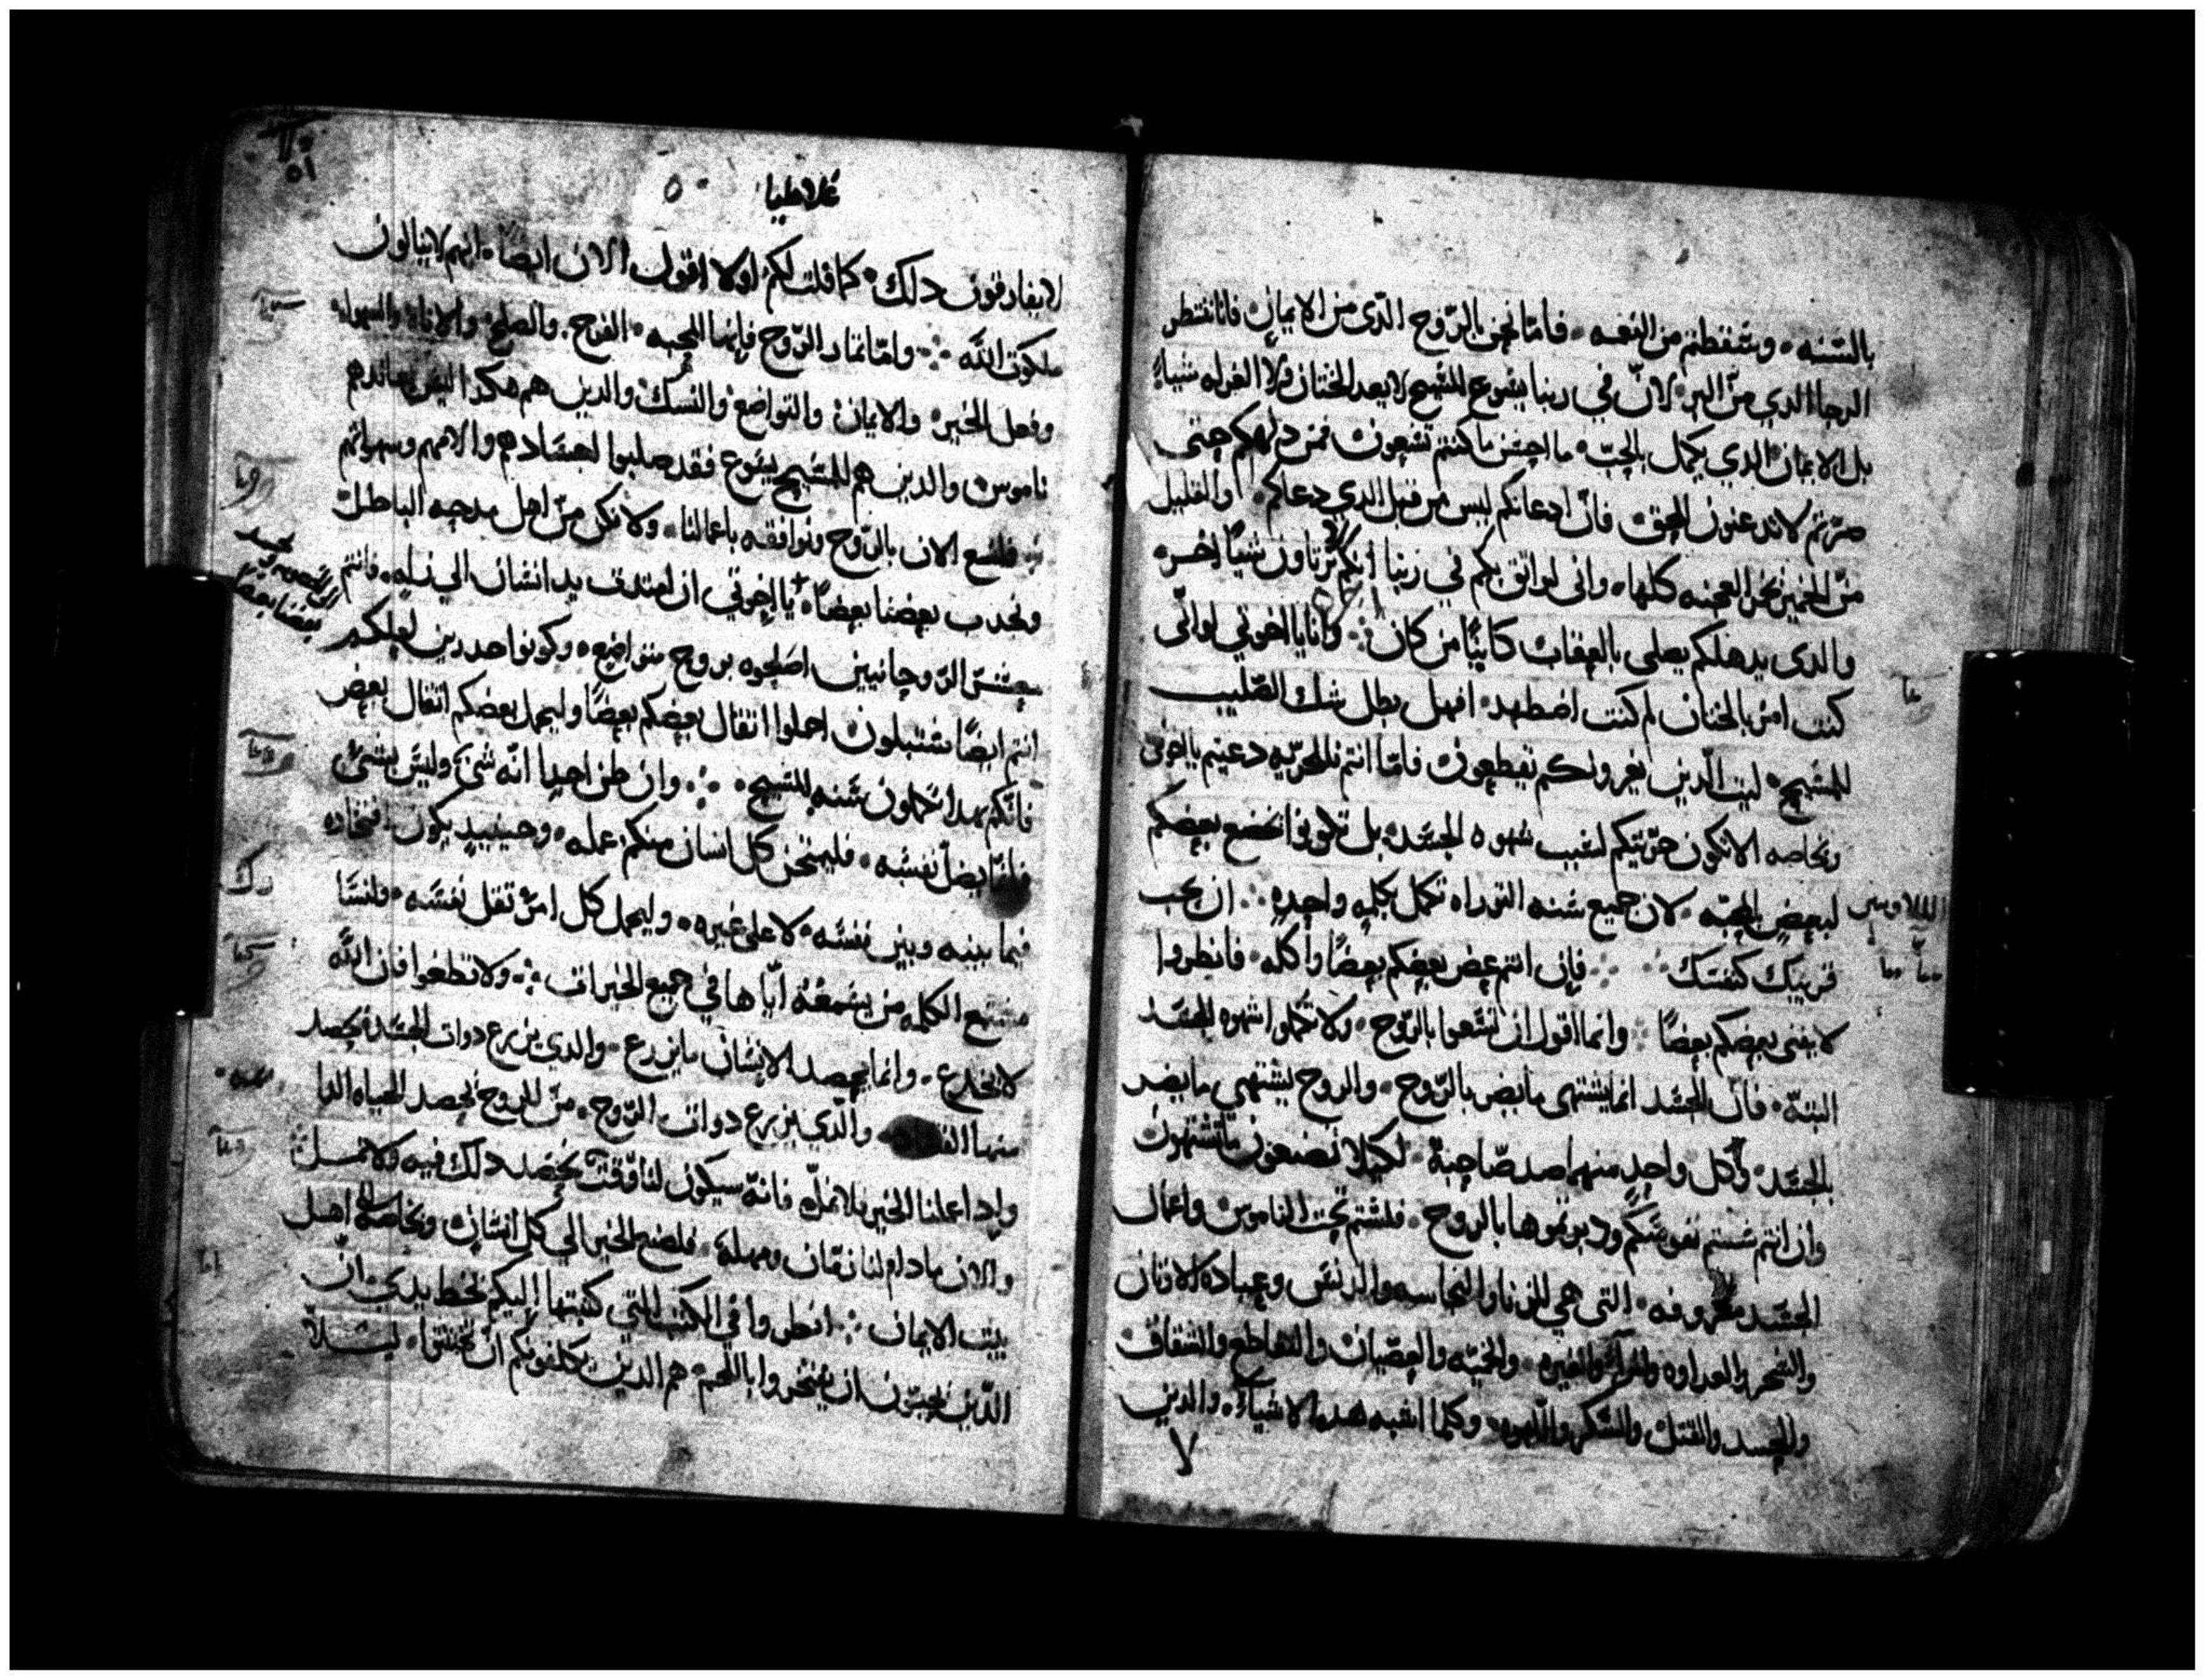 بالسنه وسقطتم من النعمه فاما نحن بالروح الدى من الايمان فانا ننتظر
الرجا الدي من البر لان في ربنا يسوع المسيح لا يعد الختان ولا الغرله شيا
بل الايمان الدي يكمل بالحب ما احسن ما كنتم تسعون فمن دلهكم حتى
صرتم لا تدعنون للحق فان ادعانكم ليس من قبل الدي دعاكم والقليل
من الخمير يخمر العجنه كلها وانى لواثق بكم في ربنا انكم لا تاون شيا اخر
والدى يدهلكم يصلى بالعقاب كاينا من كان وانا يا اخوتي لو اني
كنت امر بالختان لم كنت اضطهد افهل بطل شك الصليب
المسيح ليت الدين يغرونكم يقطعون فاما انتم فللحريه دعيتم يا اخوتى
وبخاصه الا تكون حريتكم لسبب شهوه الجسد بل تكونوا يخضع بعضكم
لبعض بالمحبه لان جميع سنه التوراه تكمل بكلمه واحده ان تحب
قريبك كنفسك فان انتم عض بعضكم بعضا واكله فانظروا
لا يفنى بعضكم بعضا وانما اقول ان تسعوا بالروح ولا تكملوا شهوه الجسد
البته فان الجسد انما يشتهى ما يضر بالروح والروح يشتهي ما يضر
بالجسد وكل واحد منهما ضد صاحبه لكيلا تصنعون ما تشتهون
وان انتم سستم نفوسكم ودبرتموها بالروح فلستم تحت الناموس واعمال
الجسد معروفه التى هي الزنا والنجاسه والدنس وعباده الاوثان
والسحر والعداوه والمرا والغيره والحميه والعصيان والتقاطع والشقاق
والحسد والقتل والسكر واللهو وكلما اشبه هده الاشيا والدين
غلاطيا
لا يفارقون دلك كما قلت لكم اولا اقول الان ايضا انهم لا ينالون
ملكوت الله واما ثمار الروح فانها المحبه الفرح والصلح والاناه والسهوله
وفعل الخير والايمان والتواضع والنسك والدين هم هكدا ليس يعاندهم
ناموس والدين هم للمسيح يسوع فقد صلبوا اجسادهم والامهم وشهواتهم
فلنسع الان بالروح ونوافقه باعمالنا ولا نكن من اهل مدحه الباطل
بعضنا بعضا يا اخوتي ان ابتدف يد انسان الي زله فانتم
معشر الروحانيين اصلحوه بروح متواضع وكونوا حدرين لعلكم
انتم ايضا ستبتلون احملوا اثقال بعضكم بعضا وليحمل بعضكم اثقال بعض
فانكم بهدا تكملون سنه المسيح وان ظن احدا انه شي وليس بشي
فانما يضل نفسه فليمتحن كل انسان منكم عمله وحينيد يكون افتخاره
فيما بينه وبين نفسه لا على غيره وليحمل كل امر ثقل نفسه
الكلمه من يسمعه اياها في جميع الخيرات ولا تطغوا فان الله
لا يخدع وانما يحصد الانسان ما يزرع والدي يزرع دوات الجسد يحصد
منها والدي يزرع دوات الروح من الروح يحصد الحياه
وادا عملنا الخير فلا نمل فانه سيكون لنا وقت نحصد دلك فيه ولا نمل
والان ما دام لنا زمان ومهله فلنصنع الخير الي كل انسان وبخاصه الي اهل
بيت الايمان انظروا في الكتب التي كتبتها اليكم بخط يدي ان
الدين يحبون ان يفتخروا باللحم هم الدين يكلفونكم ان تختتنوا ليلا